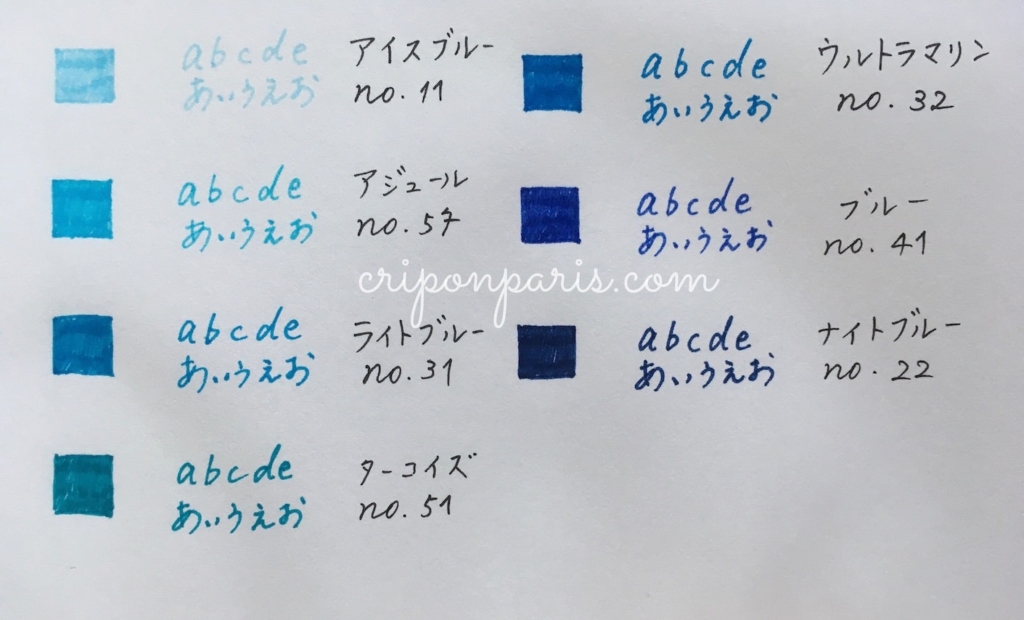 abcde
あいうえお
アイスブルー
no. 11
abcde
あいうえお
アジュール
no. 57
abcde
あいうえお
ライトブルー
no. 31
abcde
あいうえお
ターコイズ
no. 51
abcde
あいうえお
ウルトラマリン
no. 32
abcde
あいうえお
ブルー
no. 41
abcde
あいうえお
ナイトブルー
no. 22
criponparis.com